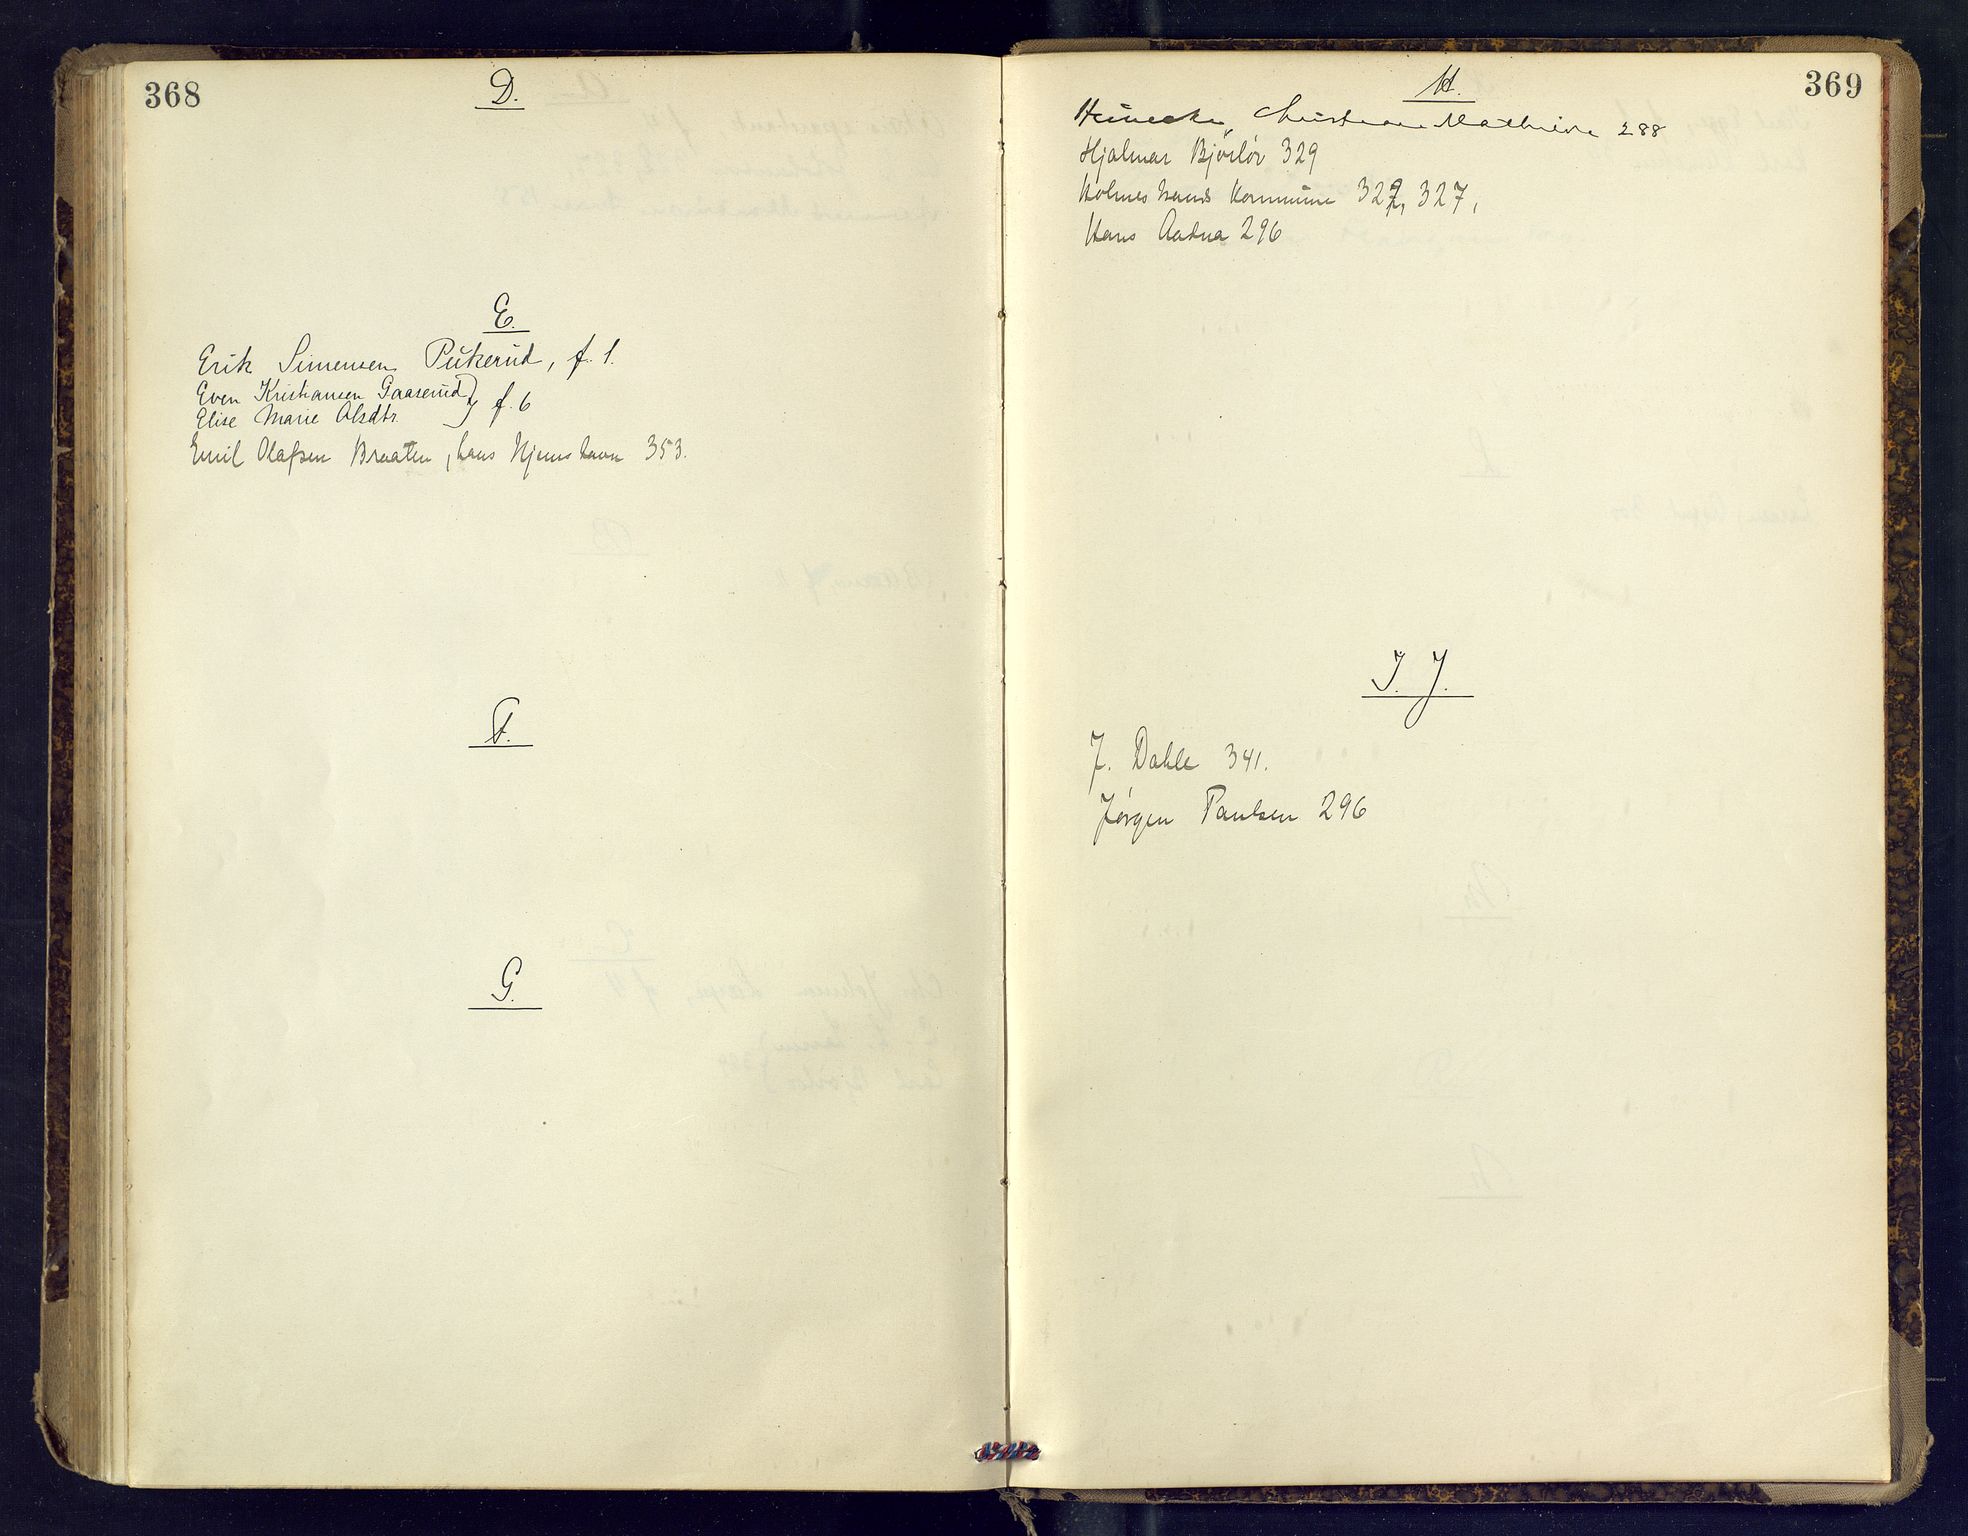 368
D.
E.
Erik Simensen Pukerud, f. 1.
Even Kristiansen Gaaserud
Elise Marie Alsdtr. } f. 6
Emil Olafsen Braaten, hans Hjemshavn 353.
F.
G.
369
H.
Heinecke, Christiane Mathiese 288
Hjalmar Bjørløv 329
Holmestrands Kommune 322, 327,
Hans Aadna 296
I. J.
J. Dahle 341.
Jørgen Paulsen 296